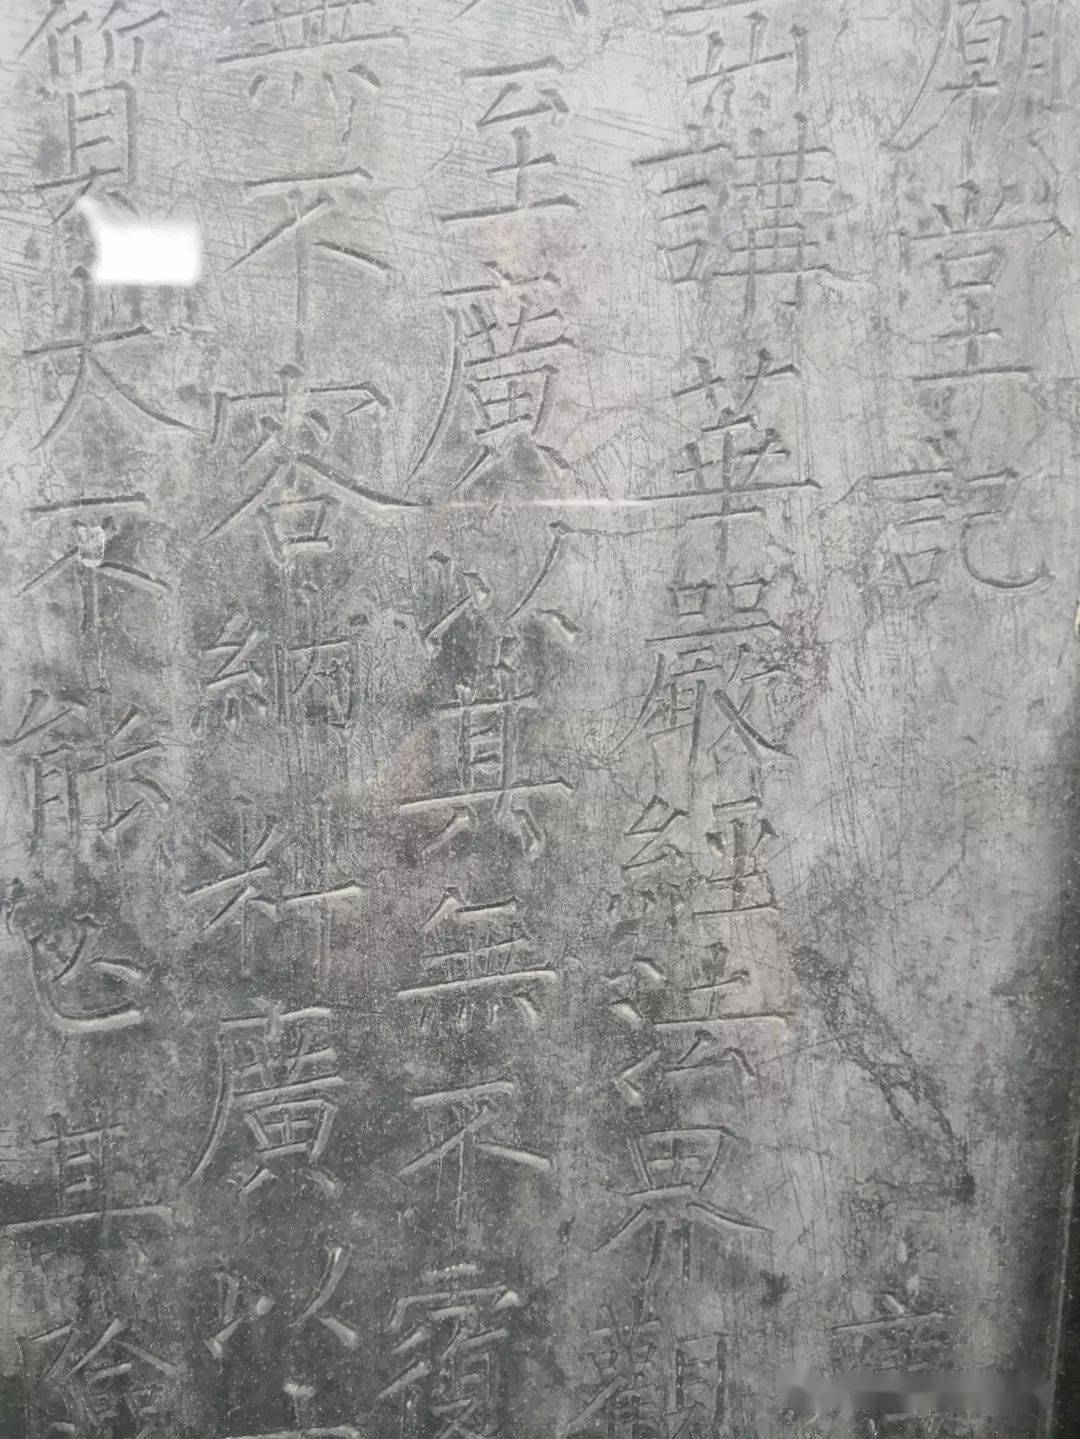 廟堂記
講華嚴經法界觀
至廣以其無不覆
無不容納料廣以
大不能其